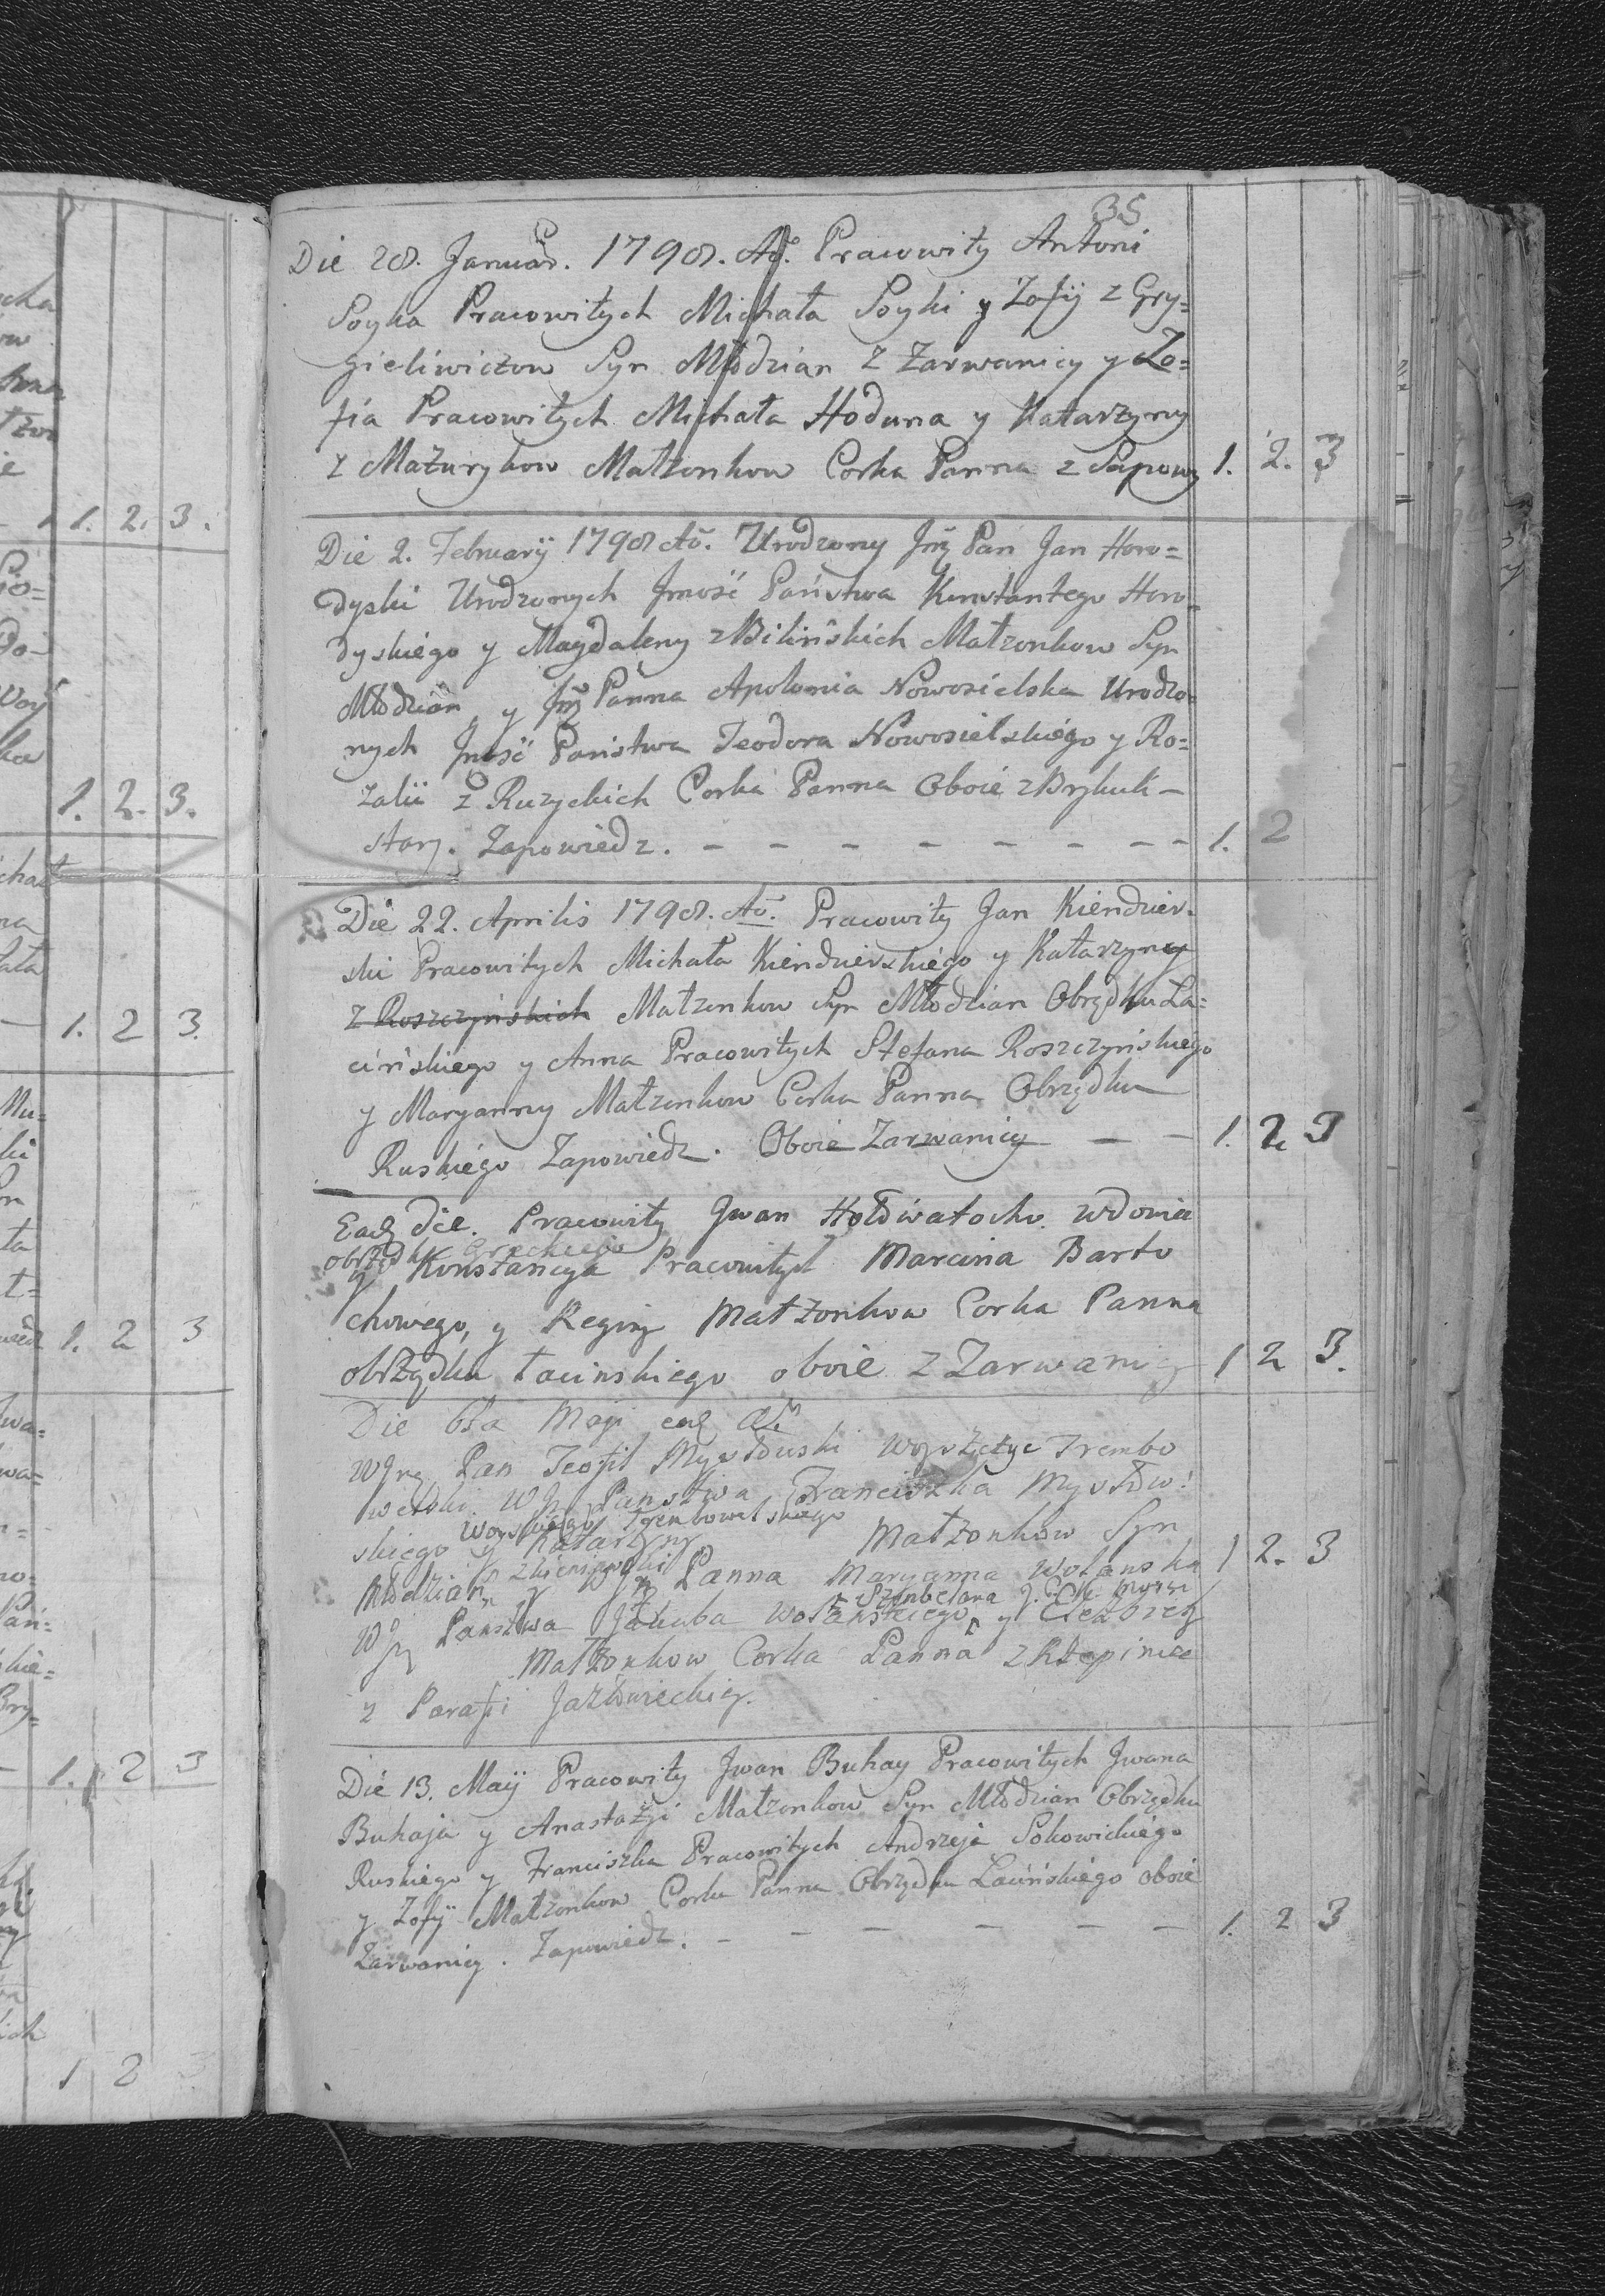 35
Die 28. Januar. 1798. Ao. Pracowity Antoni
Soyka Pracowitych Michała Soyki y Zofij z Gry=
gieliwiczow Syn Młodzian z Zarwanicy y Zo=
fia Pracowitych Michała Hoduna y Katarzyny
z Mazurykow Małzonkow Corka Panna z Sapowy 1. 2. 3
Die 2. Februarij 1798 Ao. Urodzony Jmć Pan Jan Horo=
dyski Urodzonych Jmość Państwa Konstantego Horo=
dyskiego y Magdaleny z Bilińskich Małzonkow Syn
Młodzian y Jmć Panna Apolonia Nowosielska Urodzo=
nych Jmość Państwa Teodora Nowosielskiego y Ro=
zalii z Ruzyckich Corka Panna Oboie z Brykuli
stary. Zapowiedz. - - - - - - - - 1. 2
Die 22. Aprilis 1798. Ao. Pracowity Jan Kiendzier=
ski Pracowitych Michała Kiendzierskiego y Katarzyny
z Roszczyńskich Małzonkow Syn Młodzian Obrządku La=
cińskiego y Anna Pracowitych Stefana Roszczyńskiego
y Maryanny Małzonkow Corka Panna Obrządku
Ruskiego Zapowiedz. Oboie Zarwanicy — — 1. 2. 3
Ead die. Pracowity Jwan Hołdwatocho wdowiec
obrządku Greckiego
y Konstancya Pracowitych Marcina Barto
chowego, y Reginy Małzonkow Corka Panna
obrządku łacinskiego oboie z Zarwanicy 1 2 3.
Die 6ta Maji
Pan Teofil Trembo
welski Państwa Franciszka
Woyskiego Trembowelskiego
skiego y Katarzyny Małzonkow Syn
Młodzian y Panna Maryanna Wolanska 1 2. 3
Szambelana
Państwa Jakuba Wolańskiego y
Małzonkow Corka Panna z Rzepiniec
z Parafi Jazłowieckiey.
Die 13. Maij Pracowity Jwan Buhay Pracowitych Jwana
Buhaja y Anastazyi Małzonkow Syn Młodzian Obrządku
Ruskiego y Franciszka Pracowitych Andrzeja Sokowickiego
y Zofij Małzonkow Corka Panna Obrządku Lacińskiego oboie
Zarwanicy. Zapowiedz. - - - - - - 1. 2 3